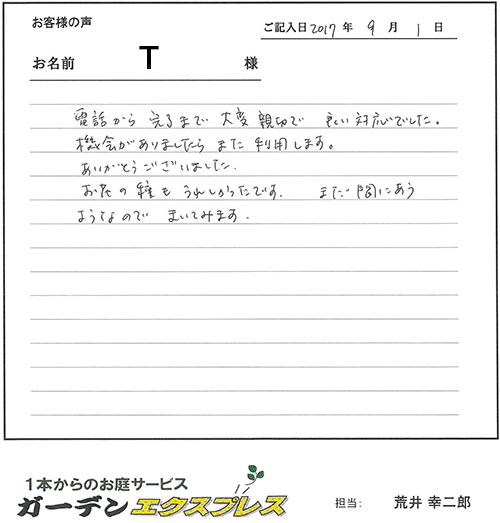 お客様の声
ご記入日 2017 年 9 月 1 日
お名前 T 様
電話から 完るまで 大変 親切で 良い 対応でした。
機会がありましたら また 利用します。
ありがとうございました.
お花の 種も うれしかったです. まだ 間にあう
ようなので まいてみます.
1本からのお庭サービス
ガーデンエクスプレス
担当: 荒井 幸二郎